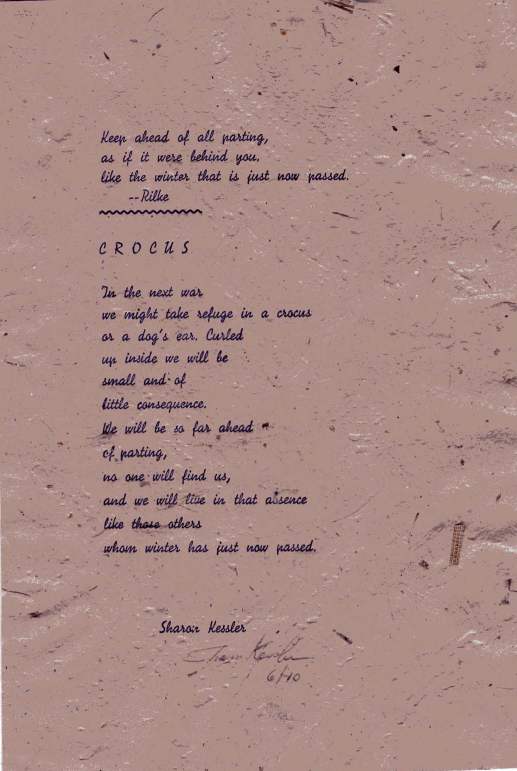 Keep ahead of all parting,
as if it were behind you.
like the winter that is just now passed.
--Rilke
CROCUS
In the next war
we might take refuge in a crocus
or a dog's ear. Curled
up inside we will be
small and of
little consequence.
We will be so far ahead
of parting,
no one will find us,
and we will live in that absence
like those others
whom winter has just now passed.
Sharon Kessler
Sharon Kessler
6/40